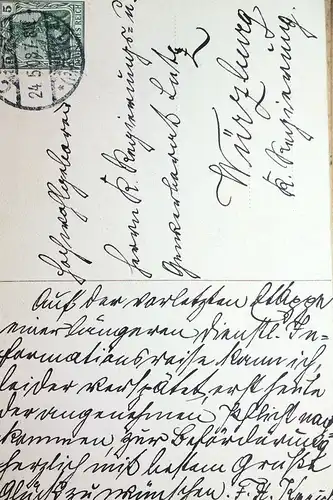 5
DEUTSCHES REICH
24.5.13.7-8N
Hochwohlgeboren
Herrn K. Regierungs- u.
Gewerberat Lutz
Würzburg
K. Regierung.
Auf der vorletzten Etappe
einer längeren dienstl. In-
formationsreise kann ich,
leider verspätet, erst heute
der angenehmen Pflicht nach
kommen, zur Beförderung
herzlich mit bestem Gruße
Glück zu wünschen.